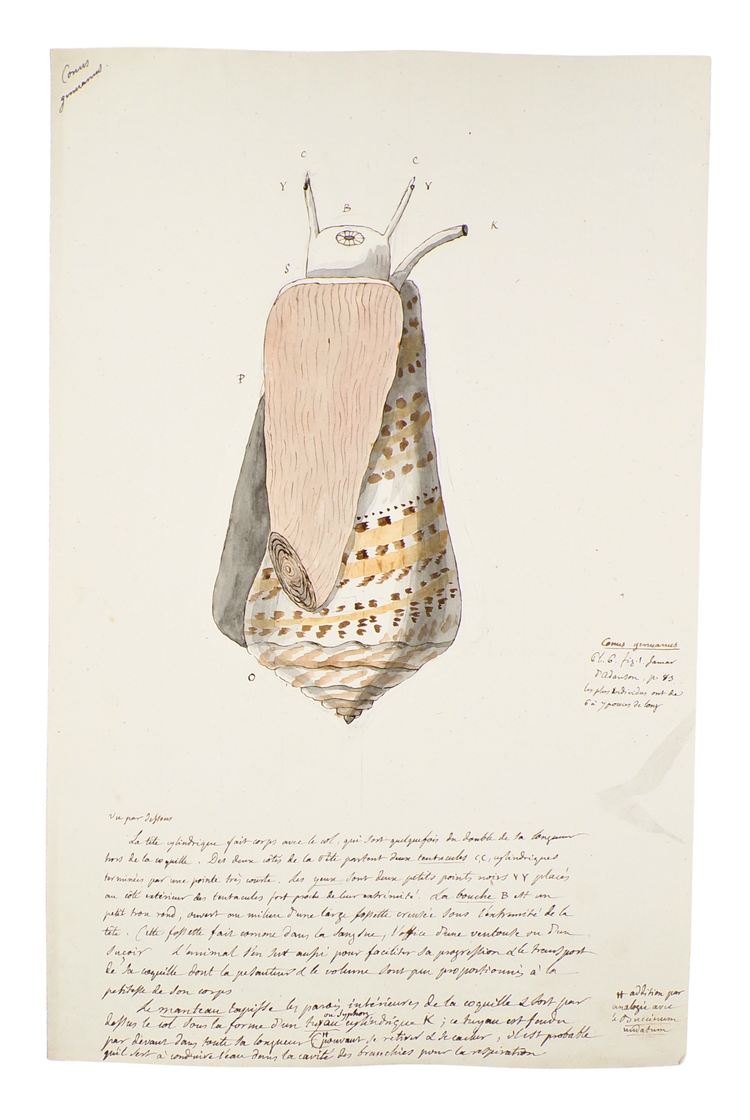 Conus
genuanus.
C
C
Y
Y
B
K
S
P
O
Conus genuanus
Pl. 6. fig. 1. Jamar
d'Adanson, p. 93
les plus individus ont de
6 à 7 pouces de long
vu par dessous
La tête cylindrique fait corps avec le col, qui sort quelquefois du double de sa longueur
hors de la coquille. Des deux côtés de la tête partent deux tentacules CC, cylindriques
terminées par une pointe très courte. les yeux sont deux petits points noirs YY placés
au côté extérieur des tentacules fort proche de leur extrémité. La bouche B est un
petit trou rond, ouvert au milieu d'une large fossette creusée sous l'extrémité de la
tête. Cette fossette fait comme dans la sangsue, l'office d'une ventouse ou d'un
suçoir. L'animal s'en sert aussi pour faciliter sa progression & le transport
de sa coquille dont la pesanteur & le volume sont peu proportionnés à la
petitesse de son corps
Le manteau tapisse les parois intérieures de la coquille & sort par
ou syphon
dessus le col sous la forme d'un tuyau cylindrique K; ce tuyau est fendu
par devant dans toute sa longueur (# pouvant se retirer & se cacher; il est probable
qu'il sert à conduire l'eau dans la cavité des branchies pour la respiration
# addition par
analogie avec
le Buccinum
undatum